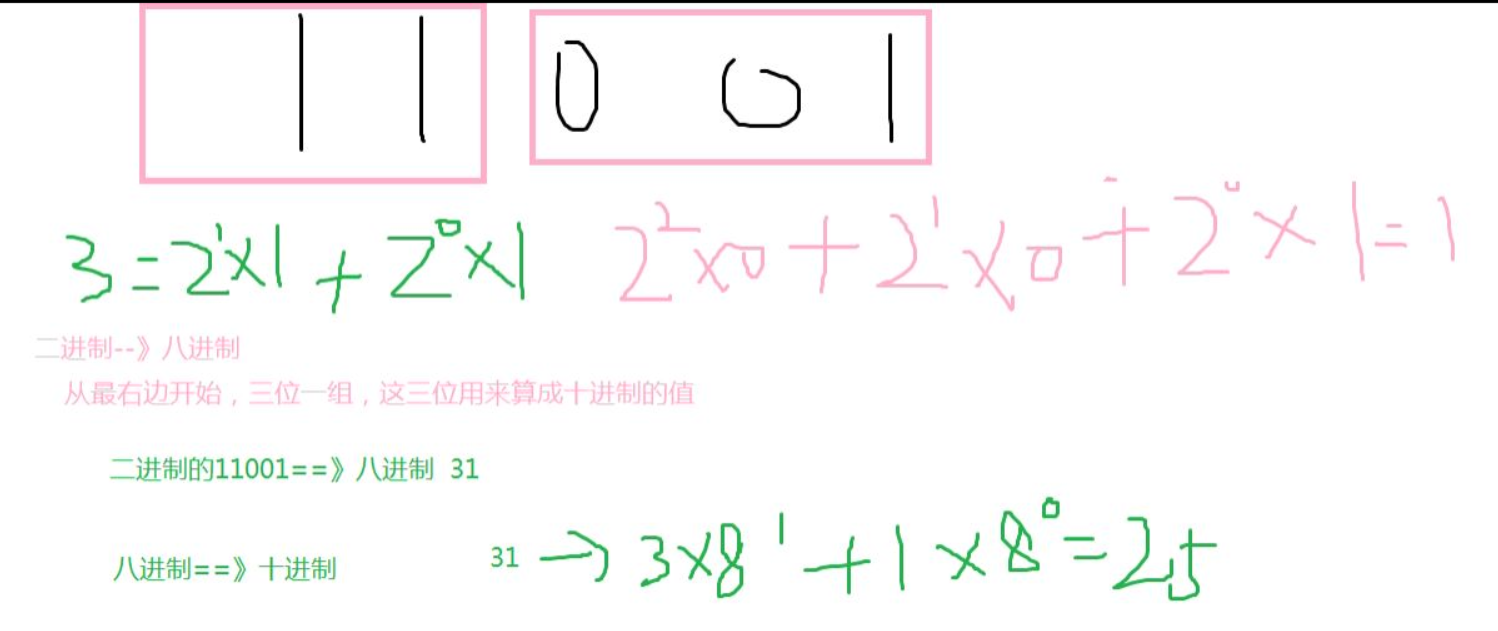 11 001
3=2¹×1+2⁰×1 2²×0+2¹×0+2⁰×1=1
二进制--》八进制
从最右边开始，三位一组，这三位用来算成十进制的值
二进制的11001==》八进制 31
八进制==》十进制 31→3×8¹+1×8⁰=25